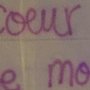 coeur
e mo